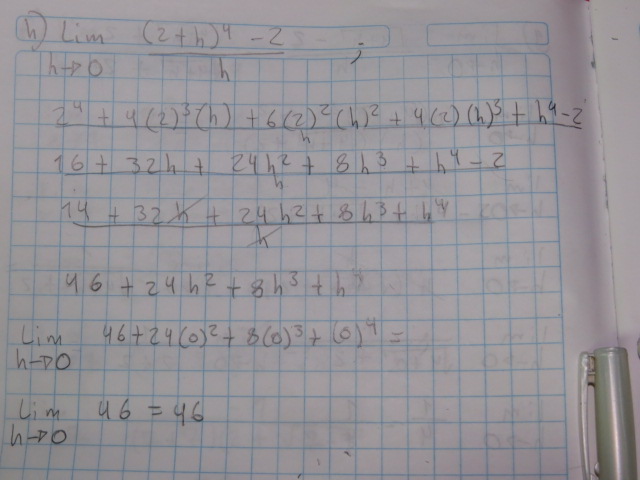 h) Lim (2+h)⁴ - 2 ;
h→0 h
2⁴ + 4(2)³(h) + 6(2)²(h)² + 4(2)(h)³ + h⁴ - 2
h
16 + 32h + 24h² + 8h³ + h⁴ - 2
h
14 + 32h + 24h² + 8h³ + h⁴
h
46 + 24h² + 8h³ + h⁴
Lim 46 + 24(0)² + 8(0)³ + (0)⁴ =
h→0
Lim 46 = 46
h→0